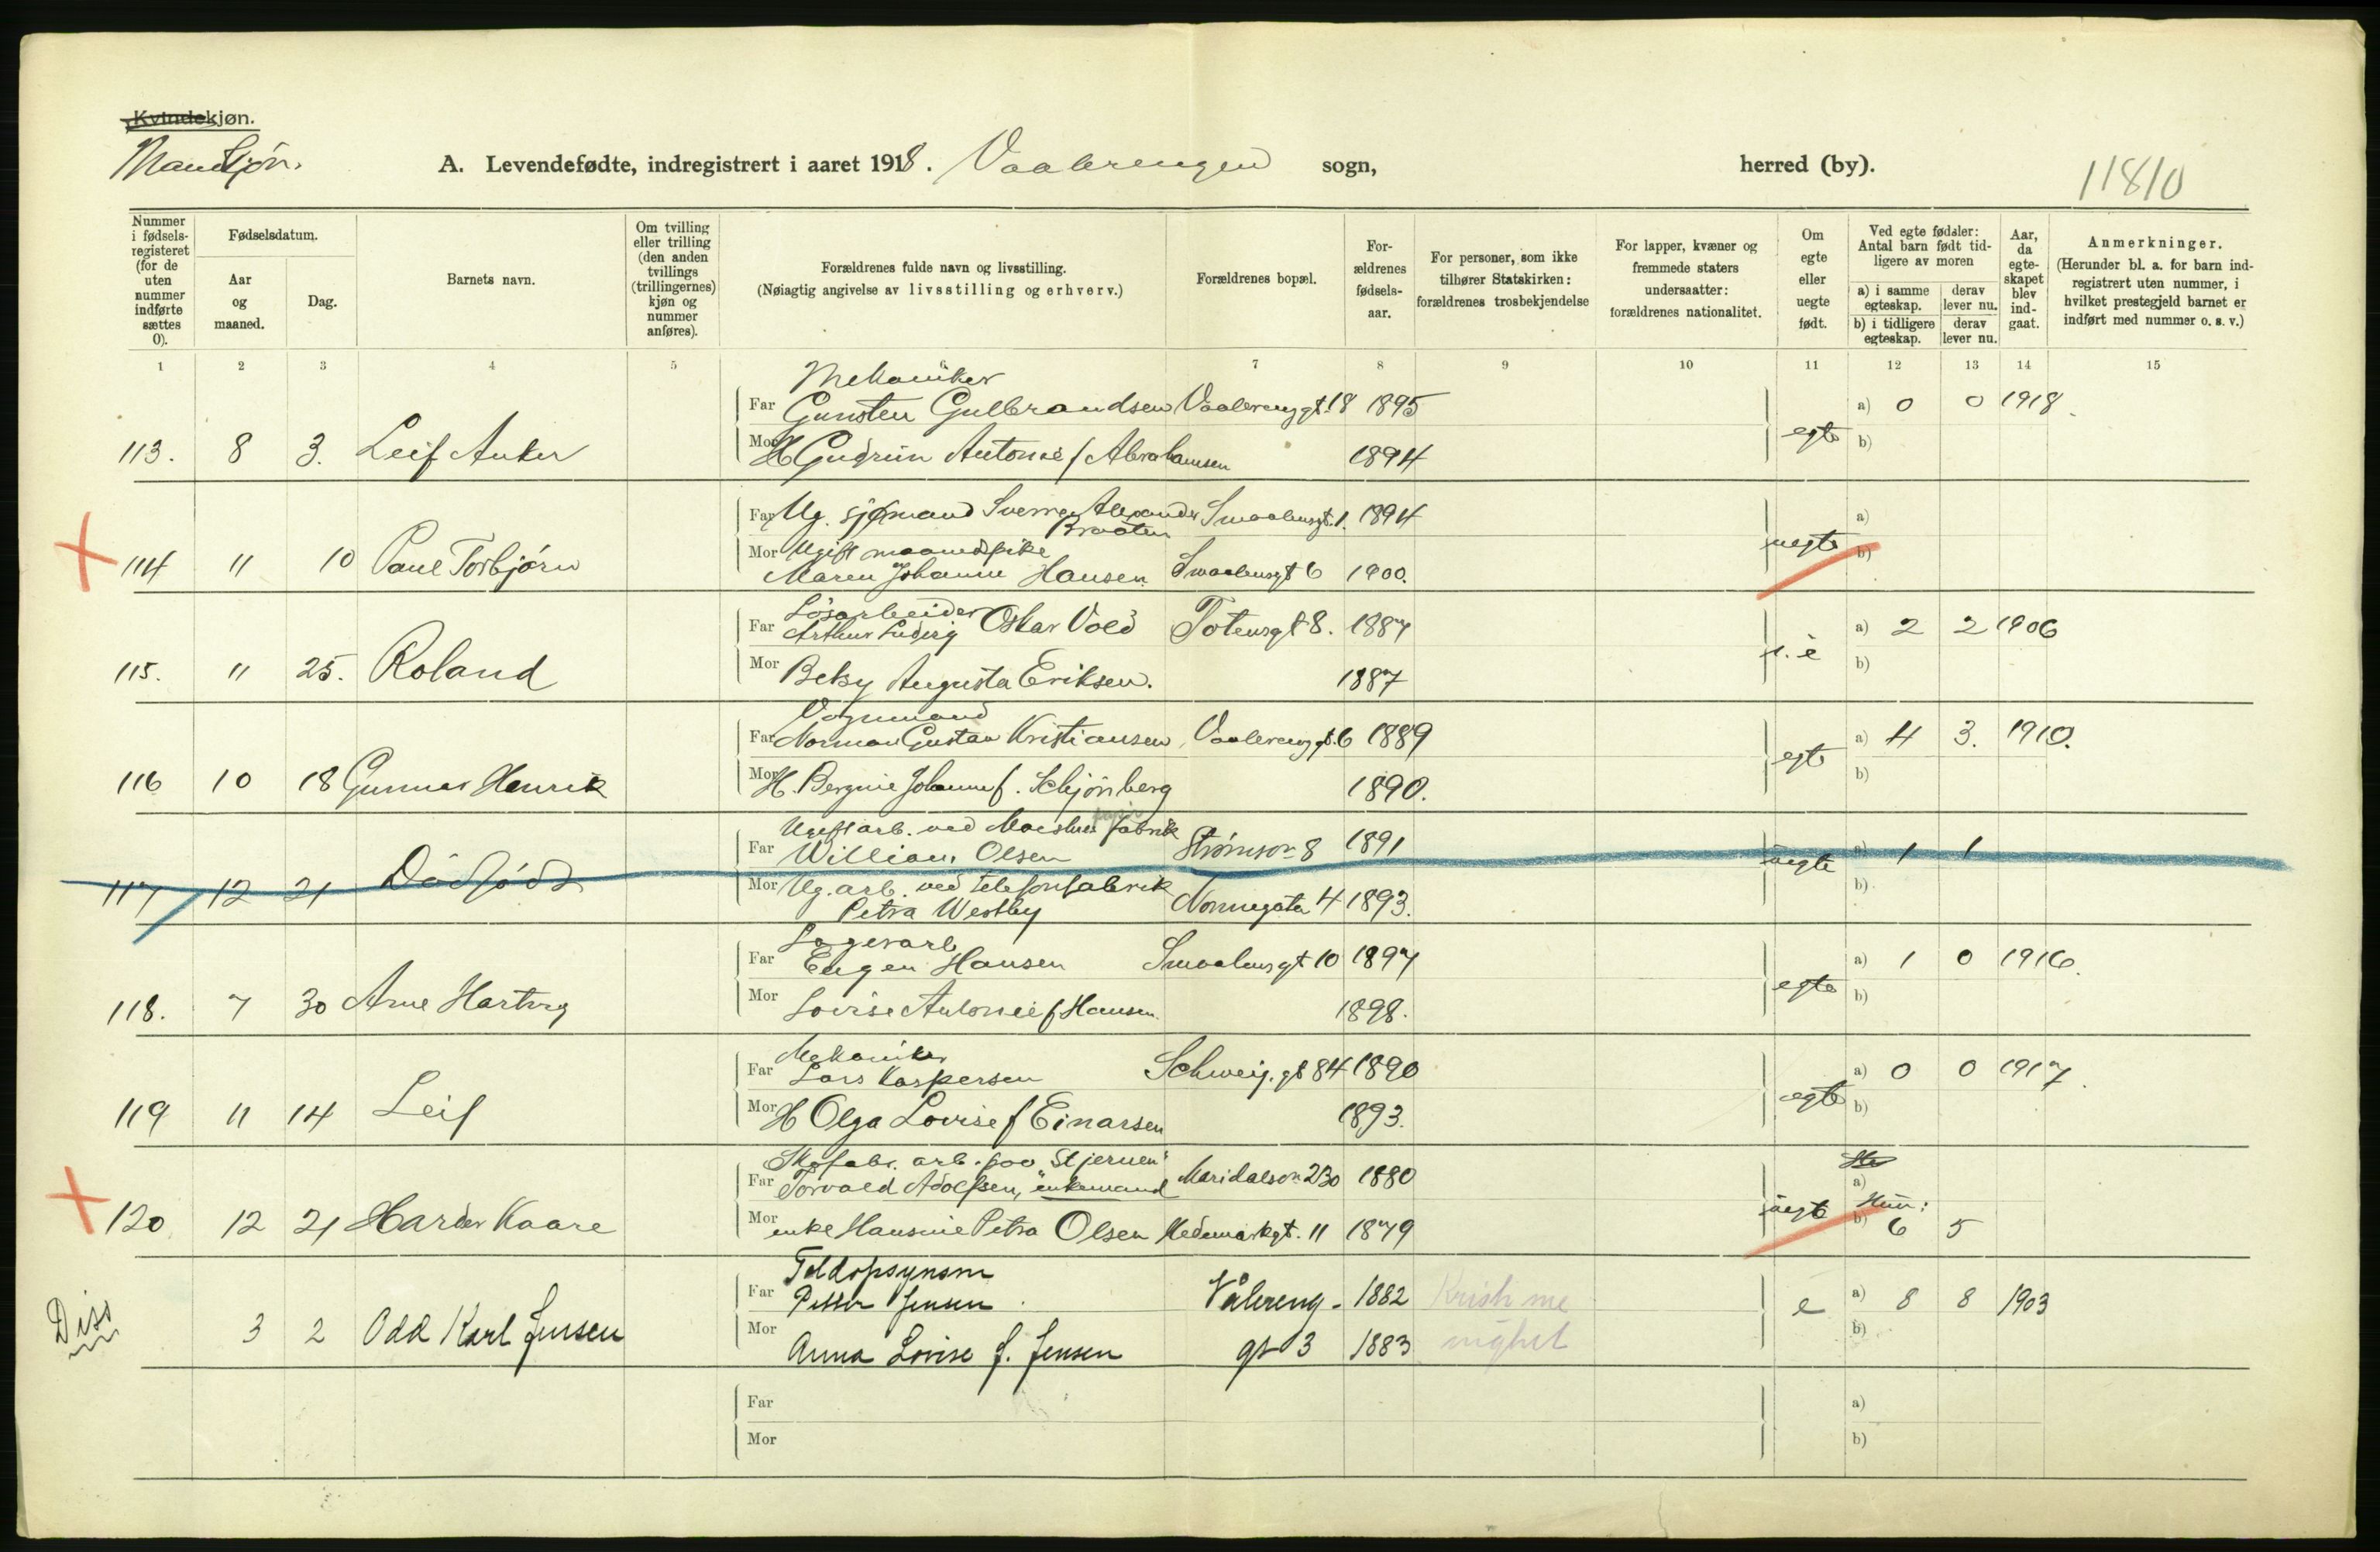 Kvindekjøn.
Mandkjøn.
A. Levendefødte, indregistrert i aaret 1918. Vaalerengen sogn, herred (by). 11810
Nummer i fødsels-registeret (for de uten nummer indførte sættes 0).
Fødselsdatum.
Aar og maaned.
Dag.
Barnets navn.
Om tvilling eller trilling (den anden tvillings (trillingernes) kjøn og nummer anføres).
Forældrenes fulde navn og livsstilling.
(Nøiagtig angivelse av livsstilling og erhverv.)
Forældrenes bopæl.
For-ældrenes fødsels-aar.
For personer, som ikke tilhører Statskirken: forældrenes trosbekjendelse
For lapper, kvæner og fremmede staters undersaatter: forældrenes nationalitet.
Om egte eller uegte født.
Ved egte fødsler: Antal barn født tid-ligere av moren
a) i samme egteskap. derav lever nu.
b) i tidligere egteskap. derav lever nu.
Aar, da egte-skapet blev ind-gaat.
Anmerkninger.
(Herunder bl. a. for barn ind-registrert uten nummer, i hvilket prestegjeld barnet er indført med nummer o. s. v.)
1 2 3 4 5 6 7 8 9 10 11 12 13 14 15
Mekaniker
Far Gunsten Gulbrandsen Vaalerenggt. 18 1895 a) 0 0 1918.
113. 8 3. Leif Anker Mor H Gudrun Antonie f Abrahamsen 1894 egte b)
Far Ug. sjømand Sverre Alexander Smaalensgt. 1. 1894 a)
Braaten
114 11 10 Paul Torbjørn Mor Ugift maanedspike uegte b)
Maren Johanne Hansen Smaalensgt 6 1900.
Løsarbeider
Far Arthur Ludvig Oskar Vold Totensgt 8. 1887 a) 2 2 1906
115. 11 25. Roland Mor Betsy Augusta Eriksen. 1887 è b)
Vognmand
Far Norman Gustav Kristiansen Vaalerenggt. 6 1889 a) 4 3. 1910.
116 10 18 Gunnar Henrik Mor H. Bergine Johanne f. Schjønberg 1890. egte b)
Ugift arb. ved fabrik
Far William Olsen Strømsv. 8 1891 a) 1 1
117 12 21 Dødfødt Mor Ug. arb. ved telefonfabrik uegte b)
Petra Westby Normegata 4 1893.
Lagerarb
Far Eugen Hansen Smaalensgt 10 1897 a) 1 0 1916.
118. 7 30 Arne Hartvig Mor Lovise Antonie f Hansen. 1898. egte b)
Mekaniker
Far Lars Kaspersen Schweig. gt 84 1890 a) 0 0 1917.
119 11 14 Leif Mor H Olga Lovise f Einarsen 1893. egte b)
Skofabr. arb. paa "Stjernen"
Far Torvald Adolfsen, enkemand Maridalsv. 230 1880 a)
120 12 21 Harder Kaare Mor enke Hansine Petra Olsen Hedemarkgt. 11 1879 uegte Hun: b) 6 5
Toldopsynsm
Far Petter Jensen Vålereng- 1882 Kristi me a) 8 8 1903
Diss 3 2 Odd Karl Jensen Mor Anna Lovise f. Jensen gt 3 1883 nighet e b)
Far a)
Mor b)